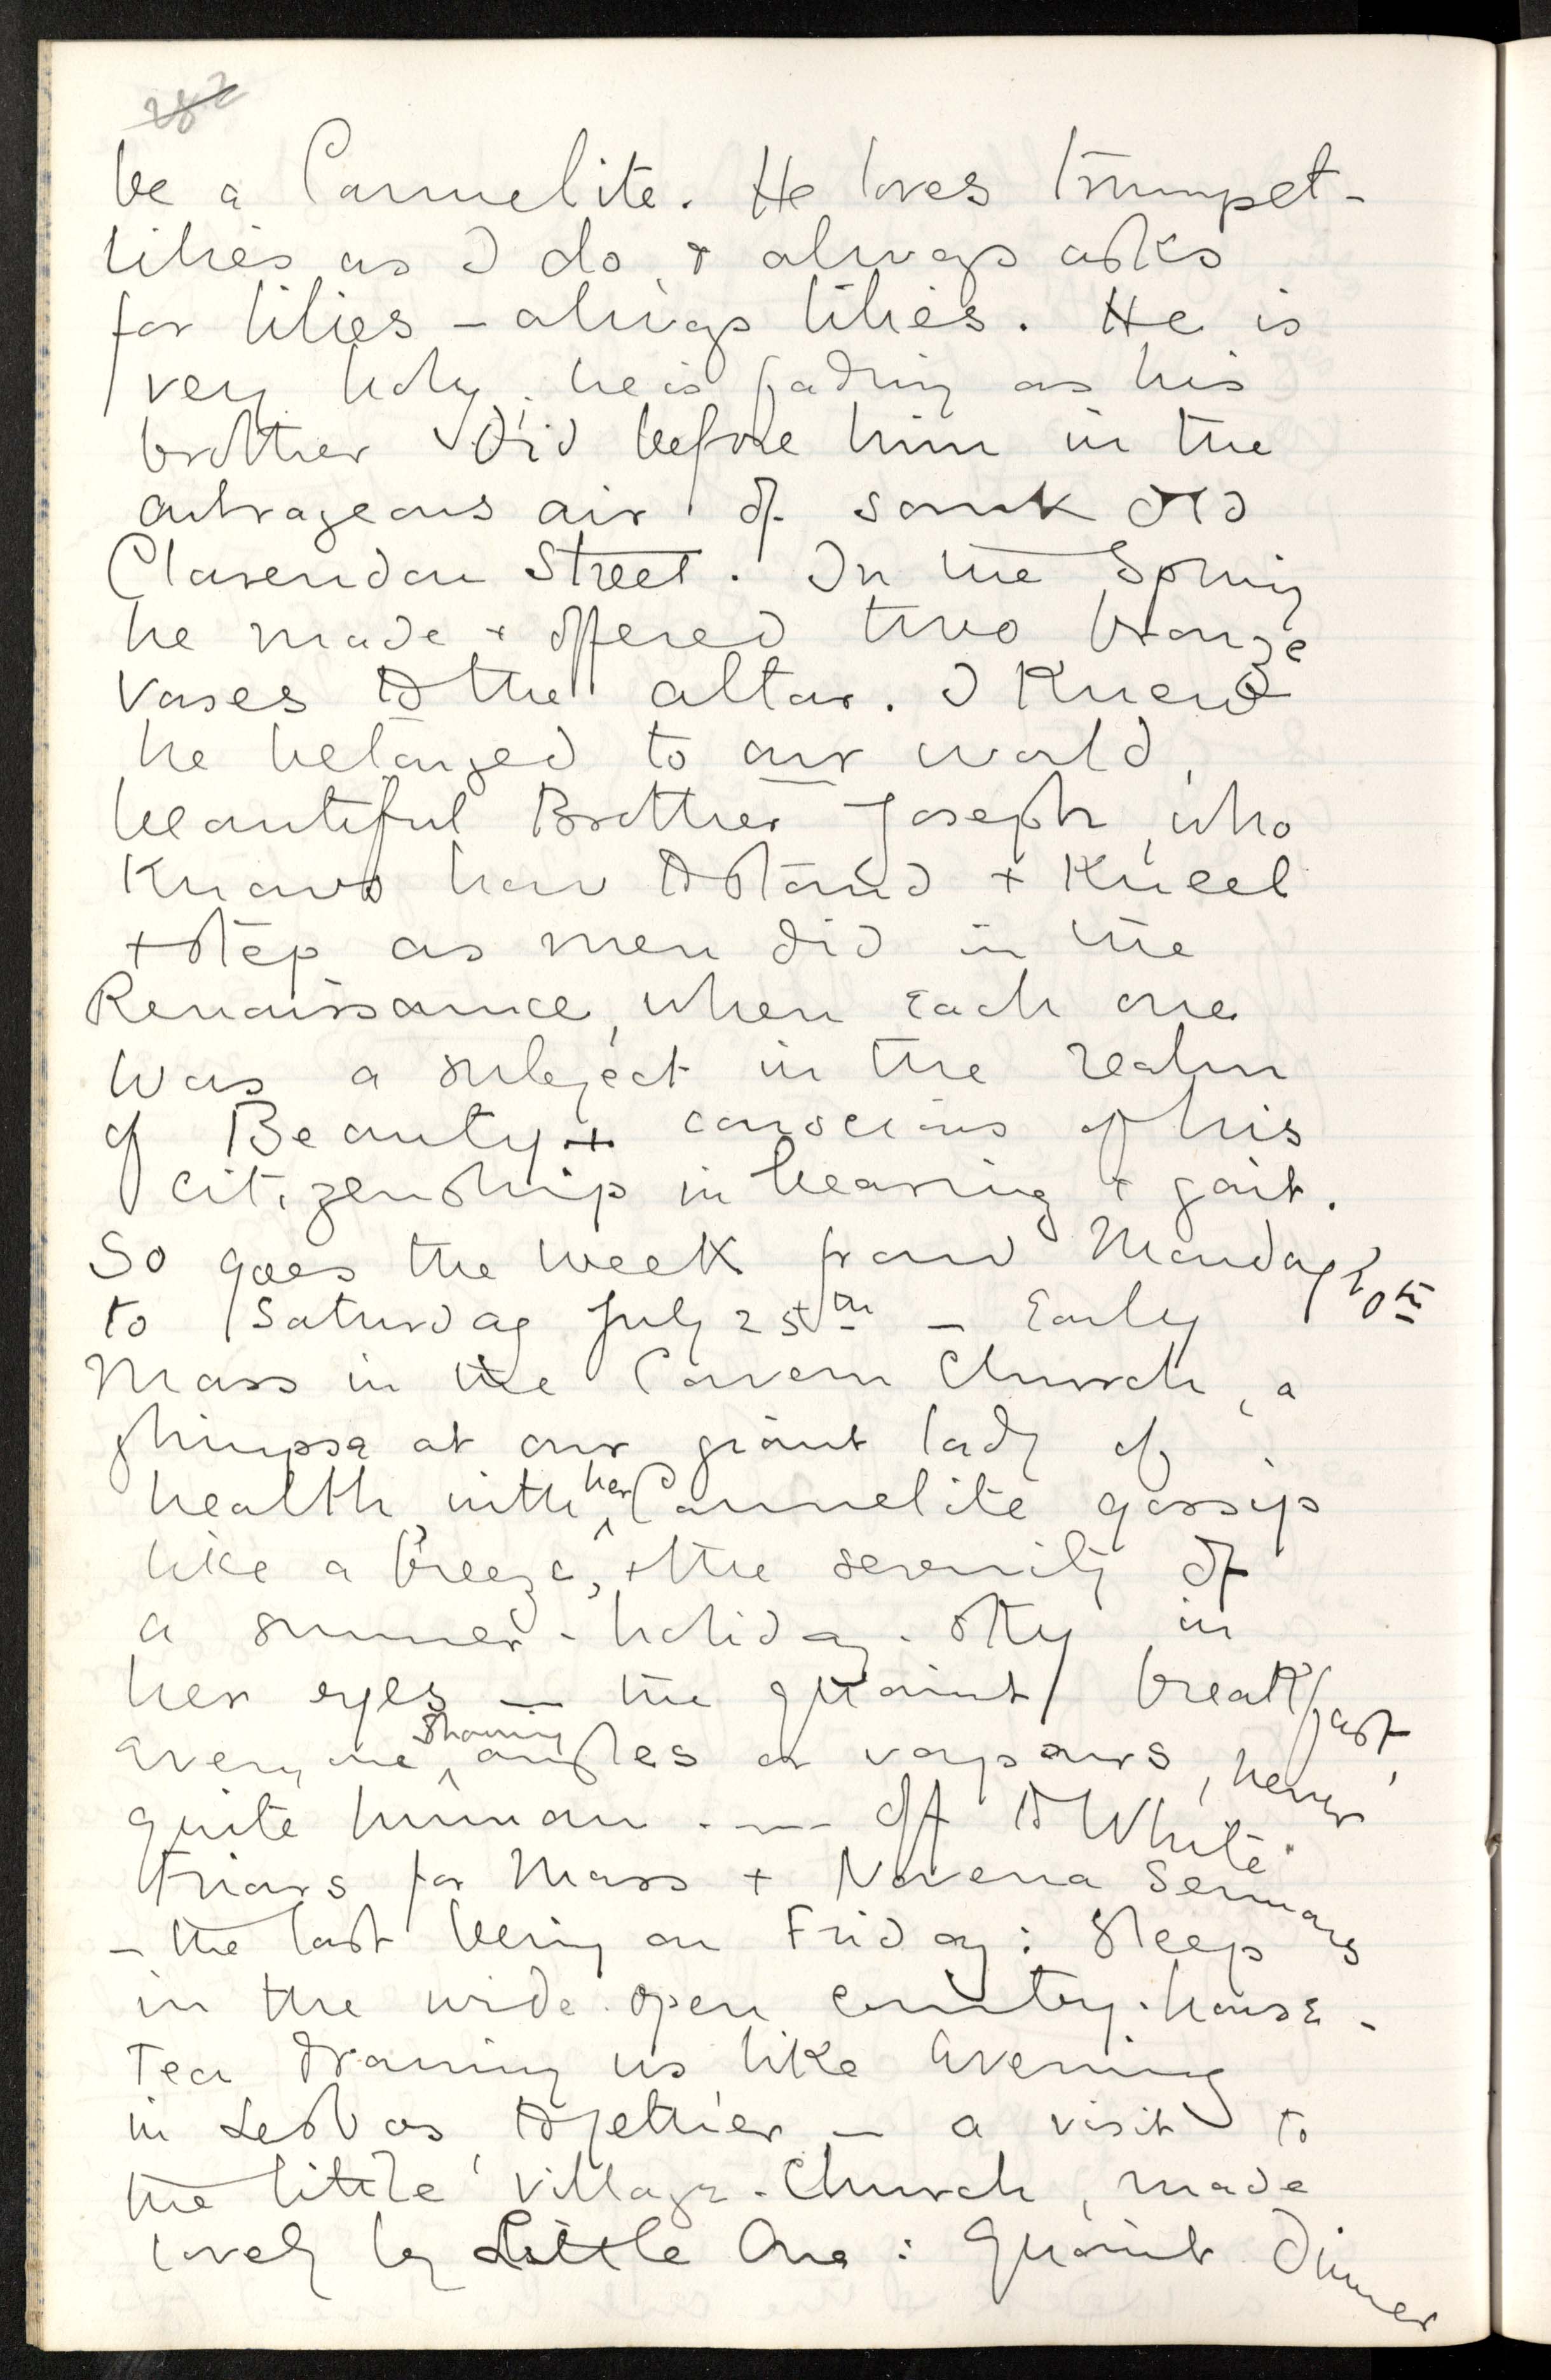 282
be a Carmelite. He loves trumpet-
lilies as I do, & always asks
for lilies – always lilies. He is
very holy; he is fading as his
brother did before him in the
outrageous air of sunk old
Clarendon Street. In the Spring
he made & offered two bronze
vases to the altar. I knew
he belonged to our world,
beautiful Brother Joseph, who
knows how to stand + kneel
+ step as men did in the
Renaissance, when each one
was a subject in the realm
of Beauty + conscious of his
citizenship in bearing + gait.
So goes the week from Monday 20th
to Saturday July 25th – Early
Mass in the Cavern Church, a
glimpse at our giant lady of
health, with her Carmelite gossip
like a breeze, + the serenity of
a summer-holiday-sky in
her eyes – the quaint breakfast,
every one showing angles or vapours, never
quite human. – off to White
Friars for Mass + Novena Sermons
– the last being on Friday: Sleep
in the wide-open country-house –
Tea drawing us like Evening
in Lesbos together – a visit to
the little village-Church, made
lovely by Little One: Quaint dinner